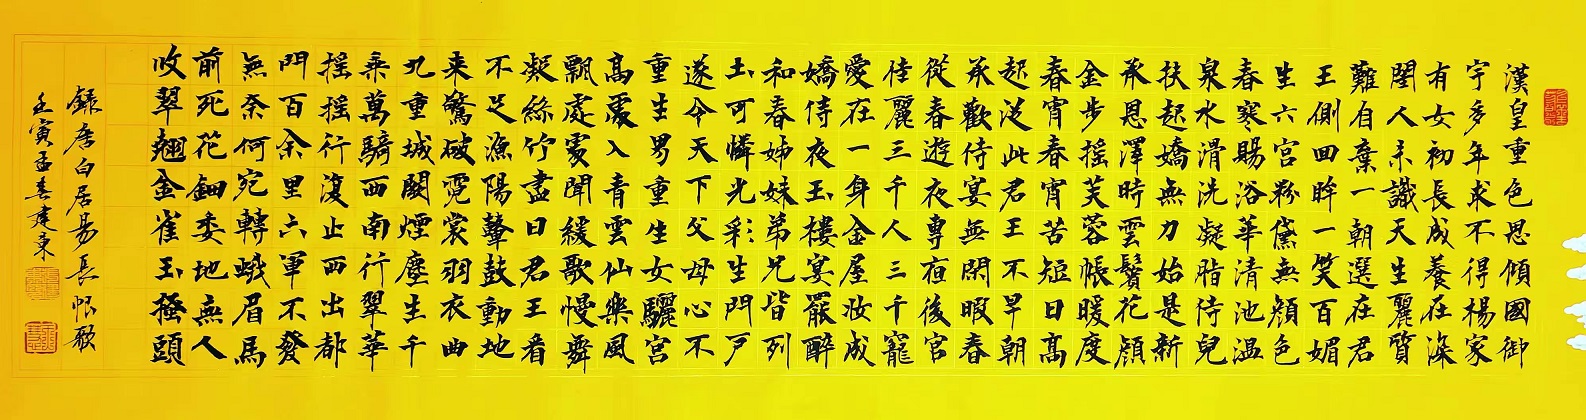 漢皇重色思傾國御
宇多年求不得楊家
有女初長成養在深
閨人未識天生麗質
難自棄一朝選在君
王側回眸一笑百媚
生六宮粉黛無顏色
春寒賜浴華清池温
泉水滑洗凝脂侍兒
扶起嬌無力始是新
承恩澤時雲鬢花顏
金步摇芙蓉帳暖度
春宵春宵苦短日高
起從此君王不早朝
承歡侍宴無閑暇春
從春遊夜專夜後宮
佳麗三千人三千寵
愛在一身金屋妝成
嬌侍夜玉樓宴罷醉
和春姊妹弟兄皆列
土可憐光彩生門戶
遂令天下父母心不
重生男重生女驪宮
高處入青雲仙樂風
飄處處聞緩歌慢舞
凝絲竹盡日君王看
不足漁陽鼙鼓動地
來驚破霓裳羽衣曲
九重城闕煙塵生千
乘萬騎西南行翠華
摇摇行復止西出都
門百余里六軍不發
無奈何宛轉蛾眉馬
前死花鈿委地無人
收翠翹金雀玉搔頭
錄唐白居易長恨歌
壬寅孟春建東